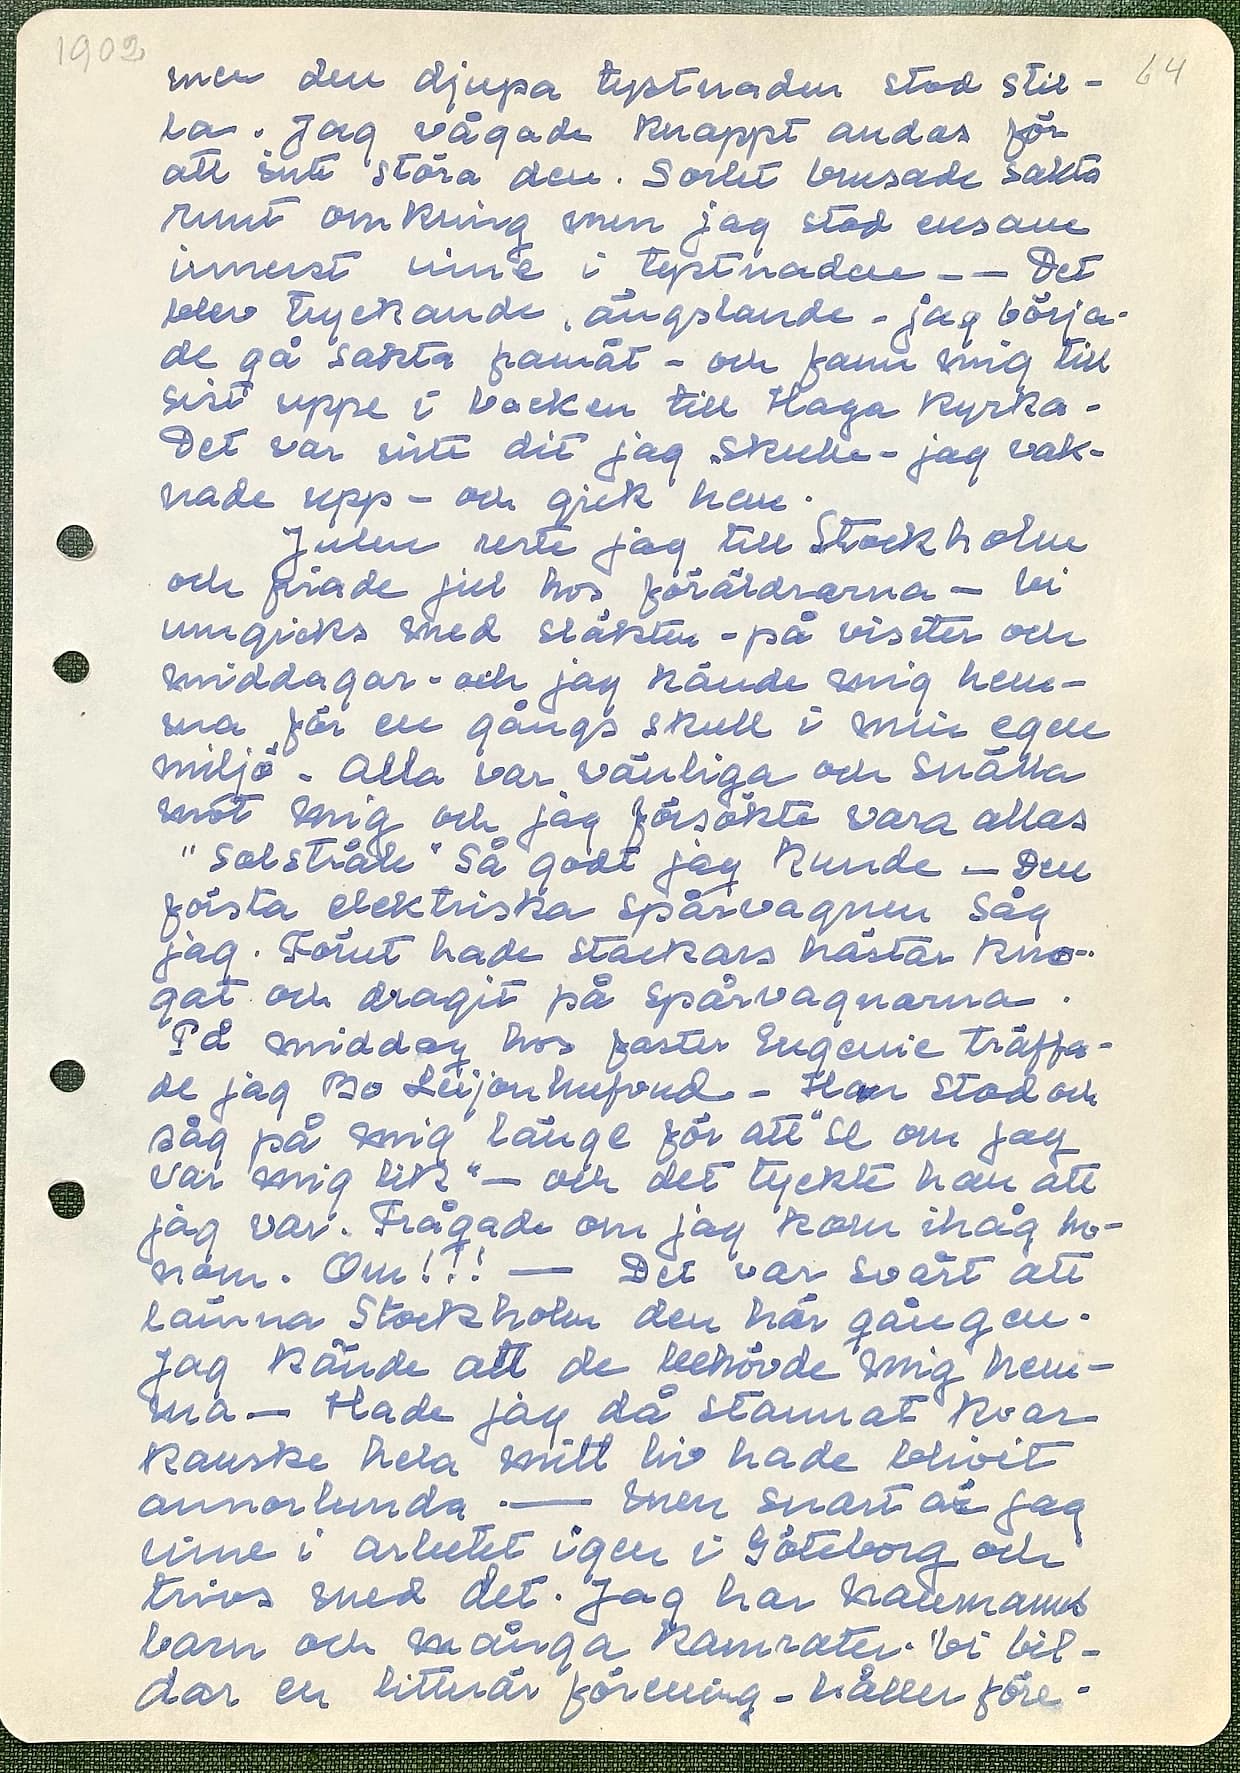 1902
64
men den djupa tystnaden stod stil-
la. Jag vågade knappt andas för
att inte störa den. Sorlet brusade sakta
runt omkring men jag stod ensam
innerst inne i tystnaden -- Det
blev tryckande, ängslande - jag börja-
de gå sakta framåt - och fann mig till
sist uppe i backen till Haga Kyrka -
Det var inte dit jag skulle - jag vak-
nade upp - och gick hem.
Julen reste jag till Stockholm
och firade jul hos föräldrarna - Vi
umgicks med släkten - på visiter och
middagar - och jag kände mig hem-
ma för en gångs skull i min egen
miljö. Alla var vänliga och snälla
mot mig och jag försökte vara allas
"Solstråle" Så godt jag kunde - Den
första elektriska spårvagnen såg
jag. Förut hade stackars hästar kno-
gat och dragit på spårvagnarna.
På middag hos faster Eugenie träffa-
de jag Bo Leijonhufvud - Han stod och
såg på mig länge för att "se om jag
var mig lik" - och det tyckte han att
jag var. Frågade om jag kom ihåg ho-
nom. Om!!! — Det var svårt att
lämna Stockholm den här gången.
Jag kände att de behövde mig hem-
ma - Hade jag då stannat kvar
kanske hela mitt liv hade blivit
annorlunda. — Men snart är jag
inne i arbetet igen i Göteborg och
trivs med det. Jag har Naumanns
barn och många kamrater. Vi bil-
dar en litterär förening - håller före-